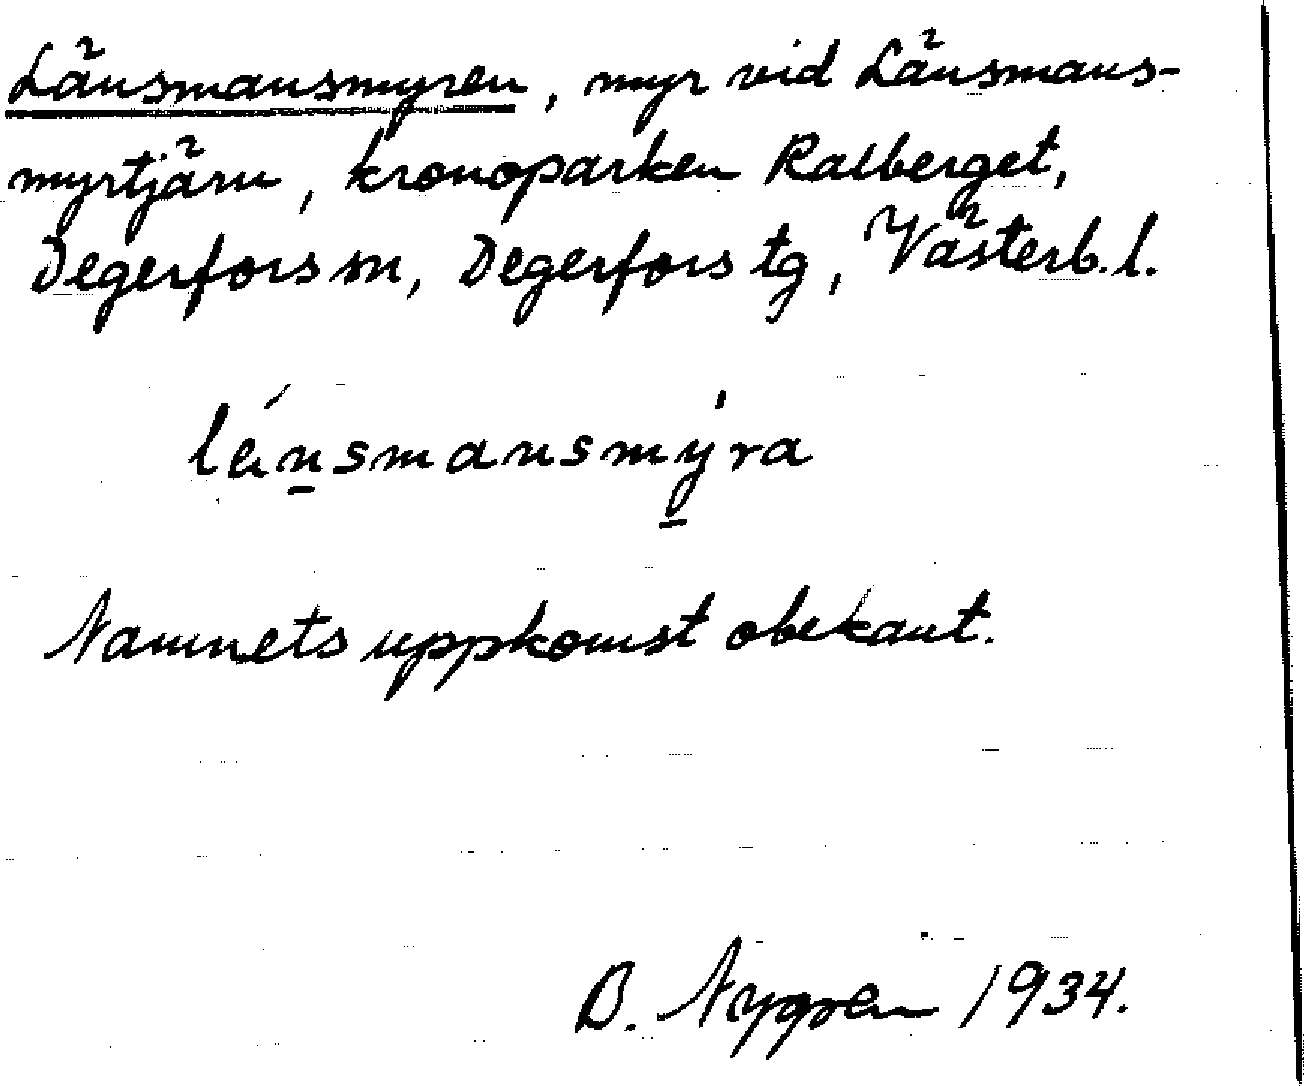 Länsmansmyren, myr vid Länsmans-
myrtjärn, kronoparken Ralberget,
Degerfors sn, Degerfors tg, Västerb. l.
lénsmansmýra
Namnets uppkomst obekant.
B. Nygren 1934.